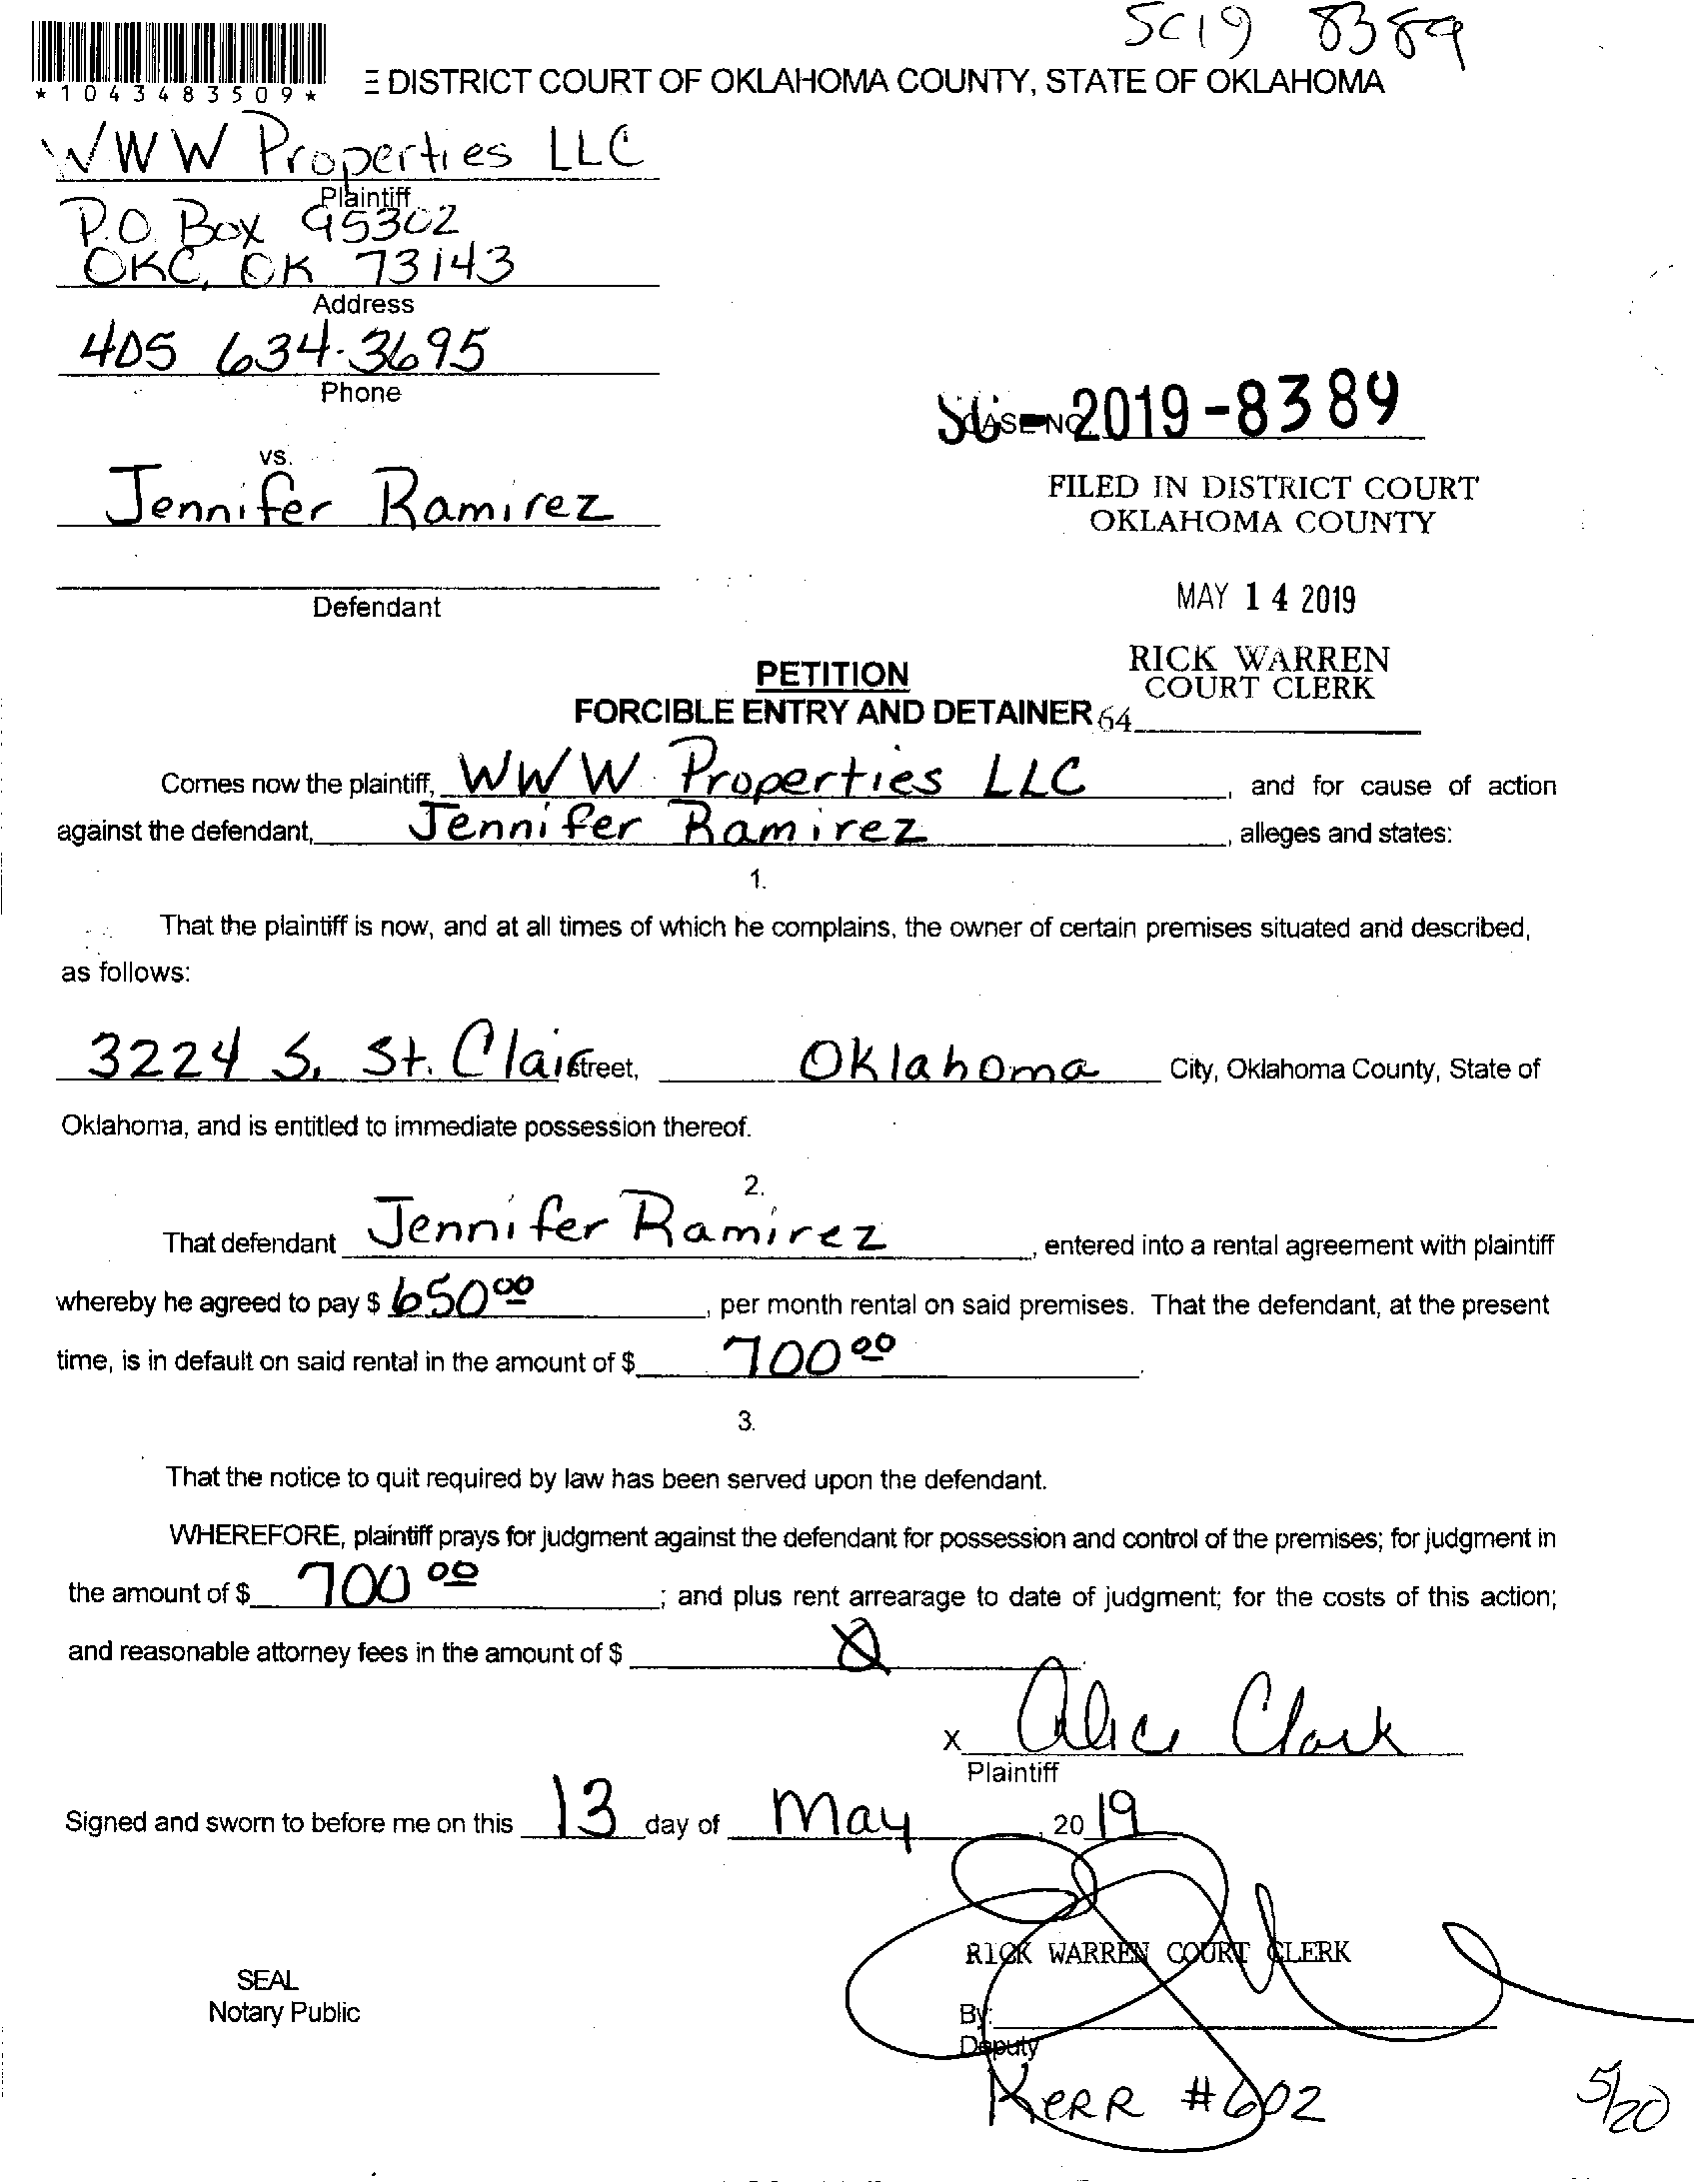 SC19 8389
*1043483509*
E DISTRICT COURT OF OKLAHOMA COUNTY, STATE OF OKLAHOMA
WWW Properties LLC
Plaintiff
P.O. Box 95302
OKC, OK 73143
Address
405 634-3695
Phone
CASE NO. SC-2019-8389
vs.
Jennifer Ramirez
FILED IN DISTRICT COURT
OKLAHOMA COUNTY
Defendant
MAY 14 2019
RICK WARREN
COURT CLERK
PETITION
FORCIBLE ENTRY AND DETAINER 64
Comes now the plaintiff, WWW Properties LLC, and for cause of action
against the defendant, Jennifer Ramirez, alleges and states:
1.
That the plaintiff is now, and at all times of which he complains, the owner of certain premises situated and described,
as follows:
3224 S. St. Clair Street, Oklahoma City, Oklahoma County, State of
Oklahoma, and is entitled to immediate possession thereof.
2.
That defendant Jennifer Ramirez, entered into a rental agreement with plaintiff
whereby he agreed to pay $ 650 00, per month rental on said premises. That the defendant, at the present
time, is in default on said rental in the amount of $ 700 00.
3.
That the notice to quit required by law has been served upon the defendant.
WHEREFORE, plaintiff prays for judgment against the defendant for possession and control of the premises; for judgment in
the amount of $ 700 00; and plus rent arrearage to date of judgment; for the costs of this action;
and reasonable attorney fees in the amount of $
x Alice Clark
Plaintiff
Signed and sworn to before me on this 13 day of May, 2019
RICK WARREN COURT CLERK
SEAL
Notary Public
By:
Deputy
KERR #602
5/20